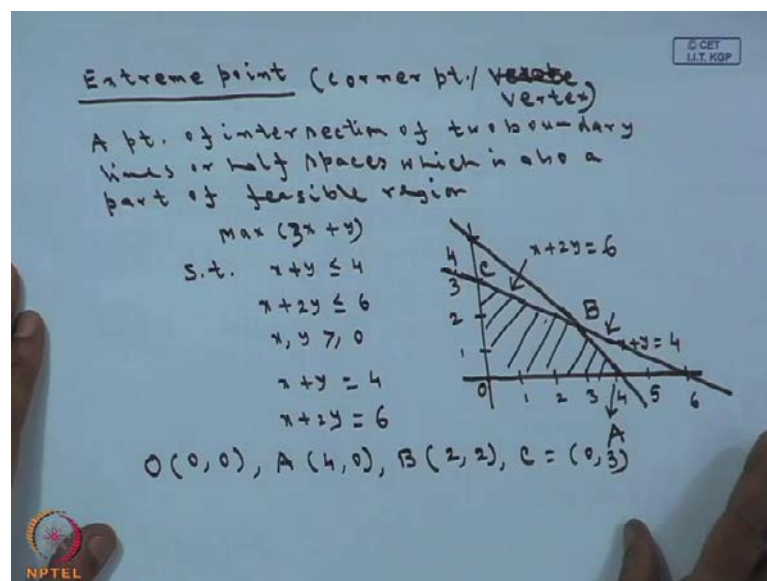 © CET
I.I.T. KGP
Extreme point (corner pt./
vertex)
A pt. of intersection of two boundary
lines or half spaces which is also a
part of feasible region
Max (3x + y)
S.t. x+y ≤ 4
x+2y ≤ 6
x, y ≥ 0
x+y = 4
x+2y = 6
x+2y=6
4
3
C
2
B
x+y=4
1
0 1 2 3 4 5 6
A
O(0,0), A(4,0), B(2,2), C=(0,3)
NPTEL